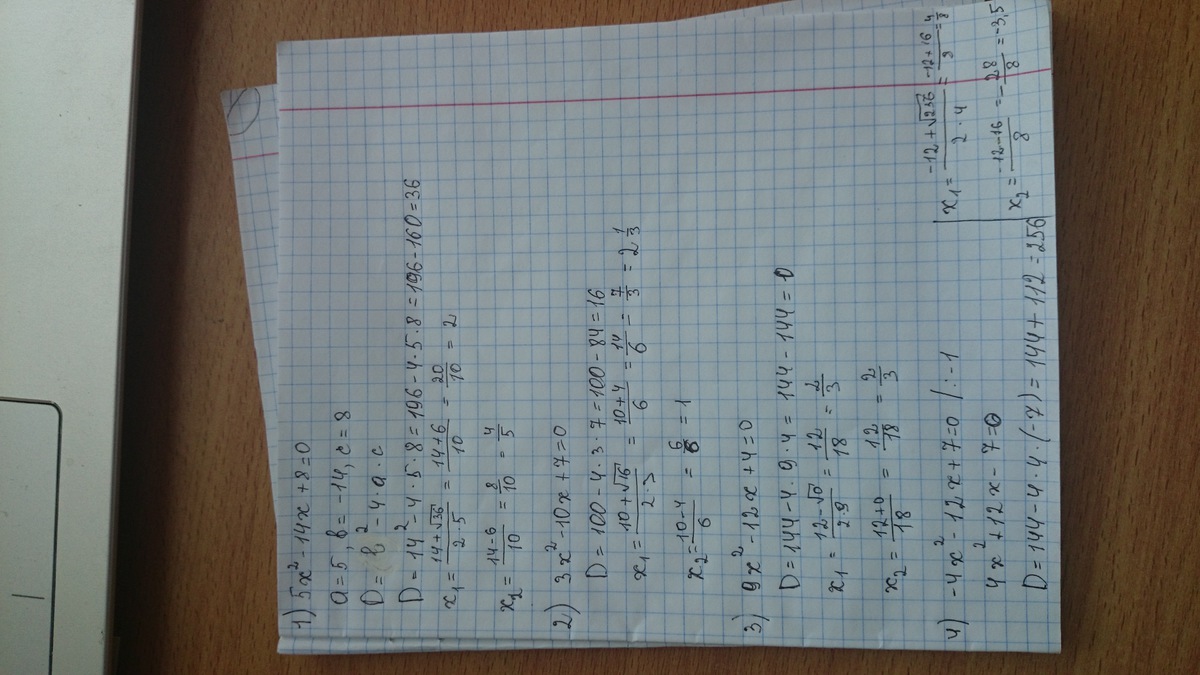 1) 5x² - 14x + 8 = 0
a = 5, b = -14, c = 8
D = b² - 4·a·c
D = 14² - 4·5·8 = 196 - 4·5·8 = 196 - 160 = 36
x₁ = (14+√36)/(2·5) = (14+6)/10 = 20/10 = 2
x₂ = (14-6)/10 = 8/10 = 4/5
2) 3x² - 10x + 7 = 0
D = 100 - 4·3·7 = 100 - 84 = 16
x₁ = (10+√16)/(2·3) = (10+4)/6 = 14/6 = 7/3 = 2 1/3
x₂ = (10-4)/6 = 6/6 = 1
3) 9x² - 12x + 4 = 0
D = 144 - 4·9·4 = 144 - 144 = 0
x₁ = (12-√0)/(2·9) = 12/18 = 2/3
x₂ = (12+0)/18 = 12/18 = 2/3
4) -4x² - 12x + 7 = 0 /:-1
4x² + 12x - 7 = 0
D = 144 - 4·4·(-7) = 144 + 112 = 256
x₁ = (-12+√256)/(2·4) = (-12+16)/8 = 4/8
x₂ = (-12-16)/8 = -28/8 = -3,5